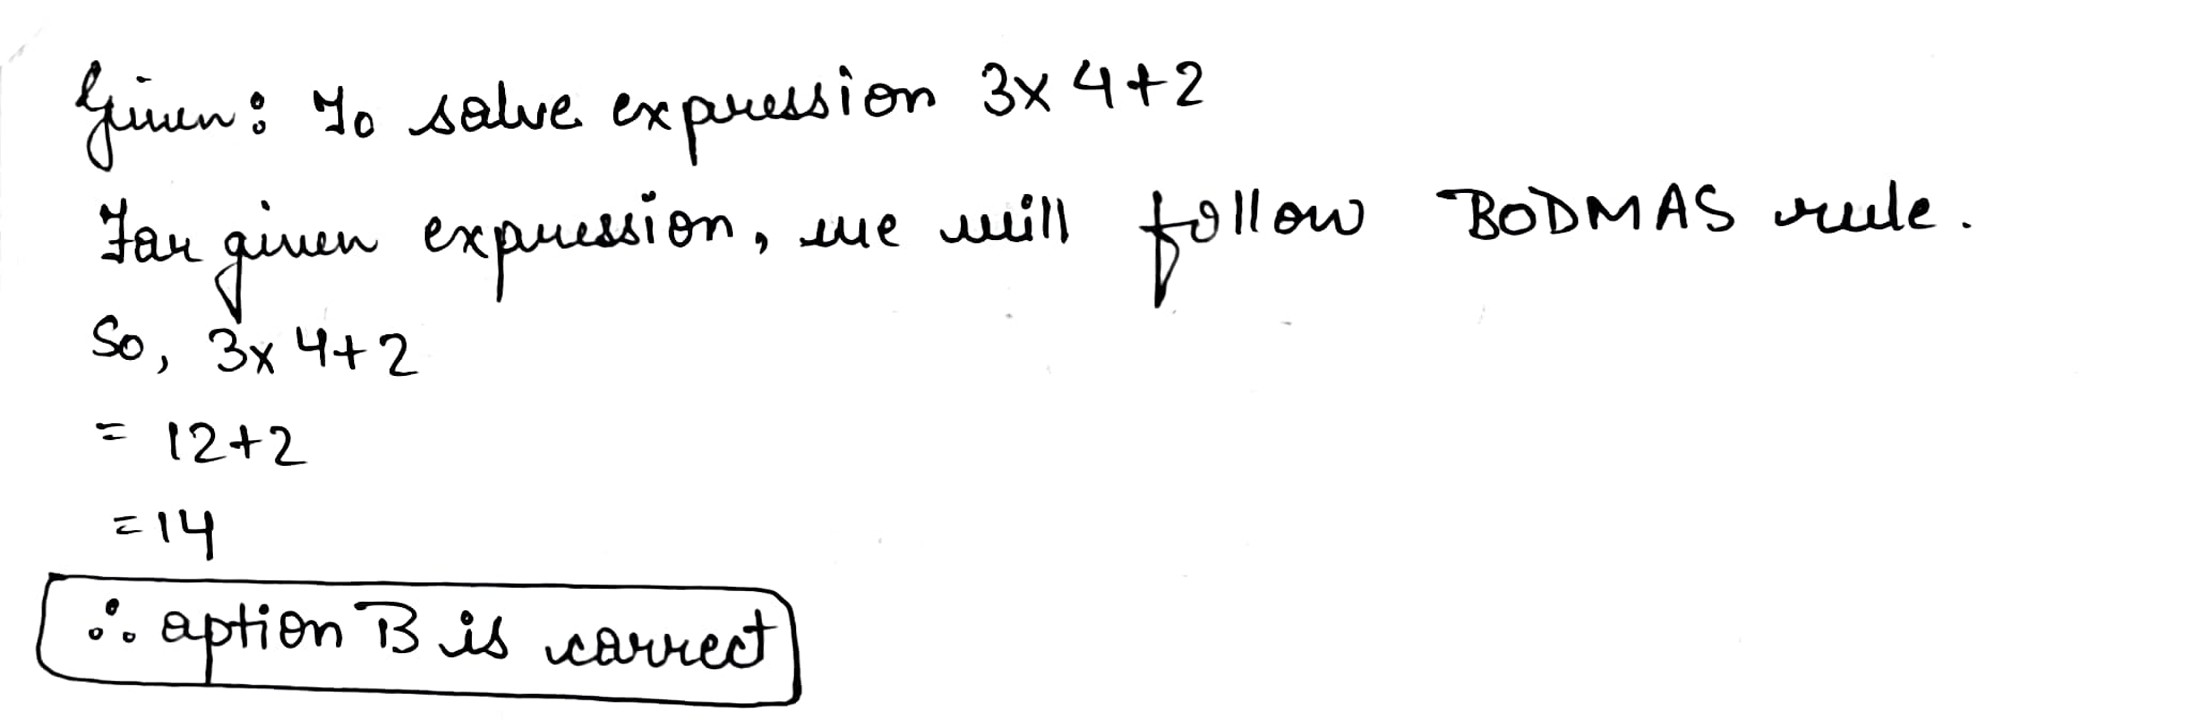 Given: To solve expression 3x4+2
For given expression, we will follow BODMAS rule.
So, 3x4+2
= 12+2
=14
∴ option B is correct